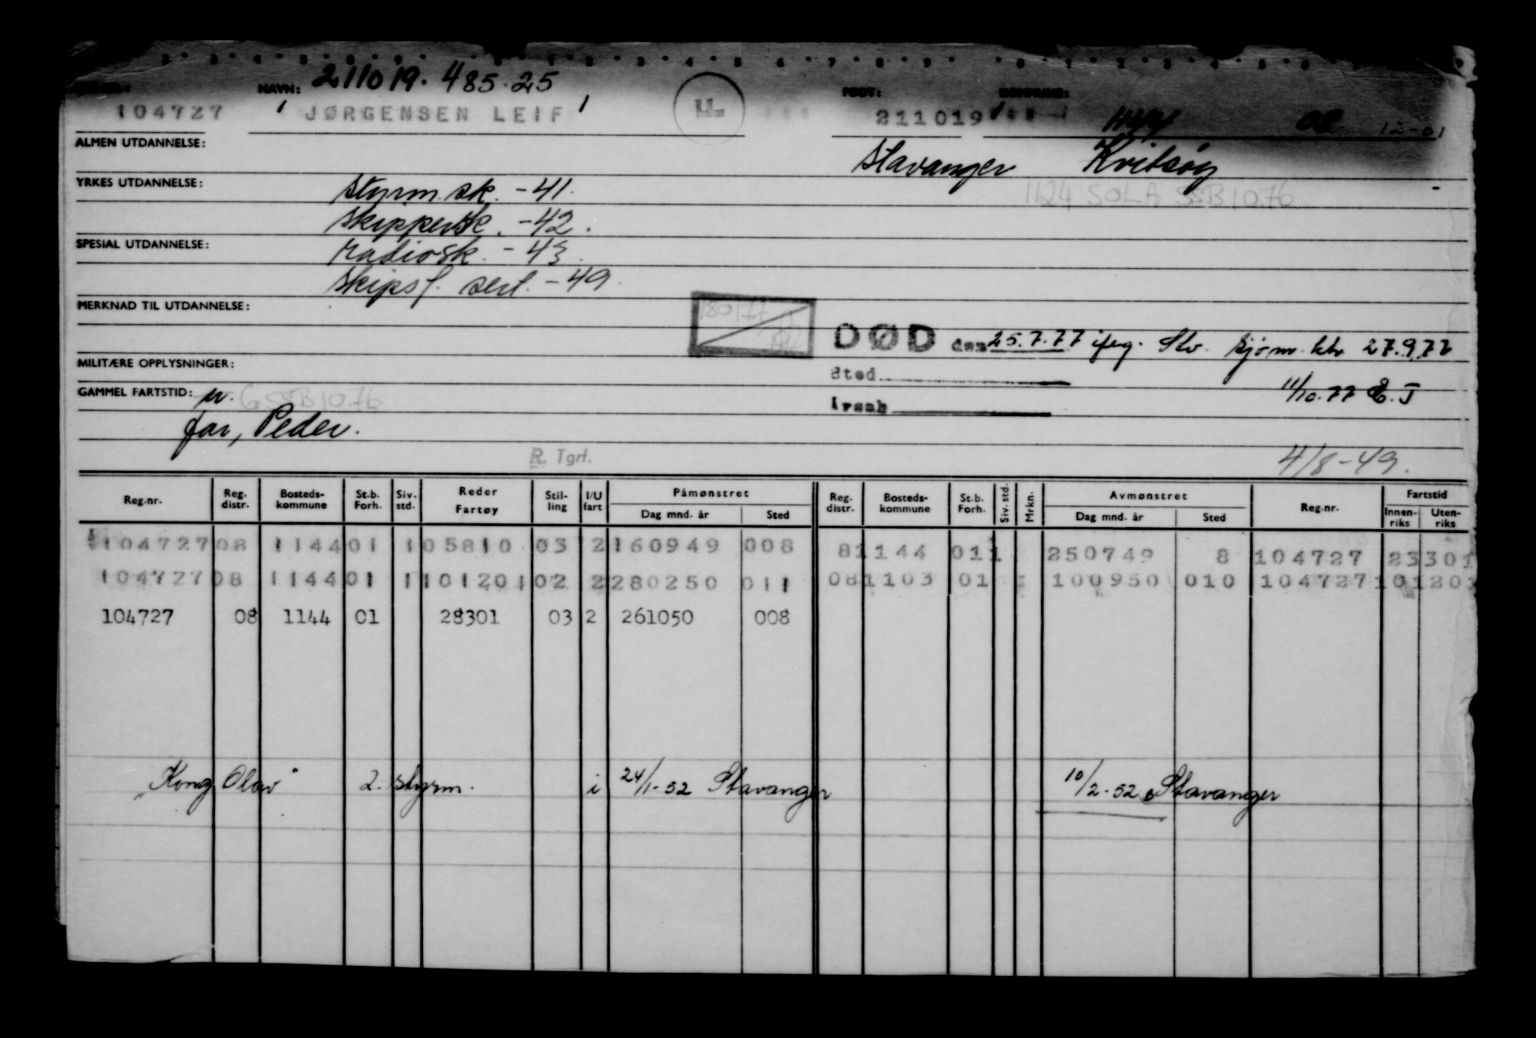 NAVN: 211019. 485.25 FØDT:
104727 JØRGENSEN LEIF 211019 12-01
ALMEN UTDANNELSE: Stavanger Kvitsøy
YRKES UTDANNELSE: styrm.sk. -41. 1124 SOLA SSB 10.76
skippersk. -42.
SPESIAL UTDANNELSE: radiosk. - 43.
skipsf. sert. - 49.
MERKNAD TIL UTDANNELSE:
DØD den 25.7.77 ifeg. Stv. sjøm. ktr 27.9.77
MILITÆRE OPPLYSNINGER: Sted
GAMMEL FARTSTID: u. G SSB 10.76 Årsak 11/10.77 E.J
far, Peder.
R. Tgrf. 4/8-49.
Reg.nr. Reg. distr. Bosteds- kommune St.b. Forh. Siv. std. Reder Fartøy Stil- ling I/U fart Påmønstret Dag mnd. år Sted Reg. distr. Bosteds- kommune St.b. Forh. Siv. std. Mrkn. Avmønstret Dag mnd. år Sted Reg.nr. Fartstid Innen- riks Uten- riks
104727 08 1144 01 1 05810 03 2 160949 008 8 1144 01 1 250749 8 104727 23301
104727 08 1144 01 1 101201 02 2 280250 011 08 1103 01 100950 010 104727 101203
104727 08 1144 01 28301 03 2 261050 008
"Kong Olav" 2. styrm. i 24/1-52 Stavanger 10/2-52 Stavanger